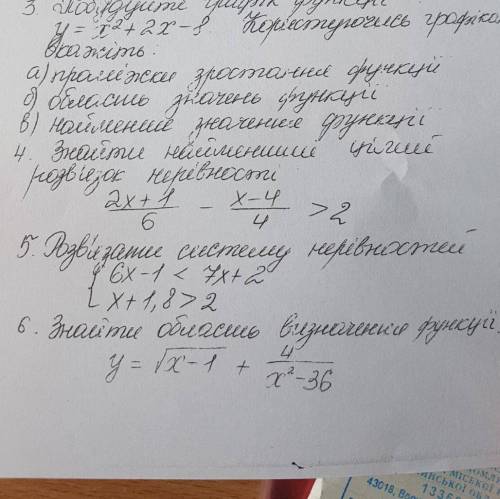 3. Побудуйте графік функції
y = x² + 2x - 8 Користуючись графіком
вкажіть:
а) проміжки зростання функції
б) область значень функції
в) найменше значення функції
4. Знайти найменший цілий
розв'язок нерівності
(2x + 1)/6 - (x - 4)/4 > 2
5. Розв'язати систему нерівностей
{ 6x - 1 < 7x + 2
x + 1,8 > 2
6. Знайти область визначення функції
y = √(x - 1) + 4/(x² - 36)
43018,